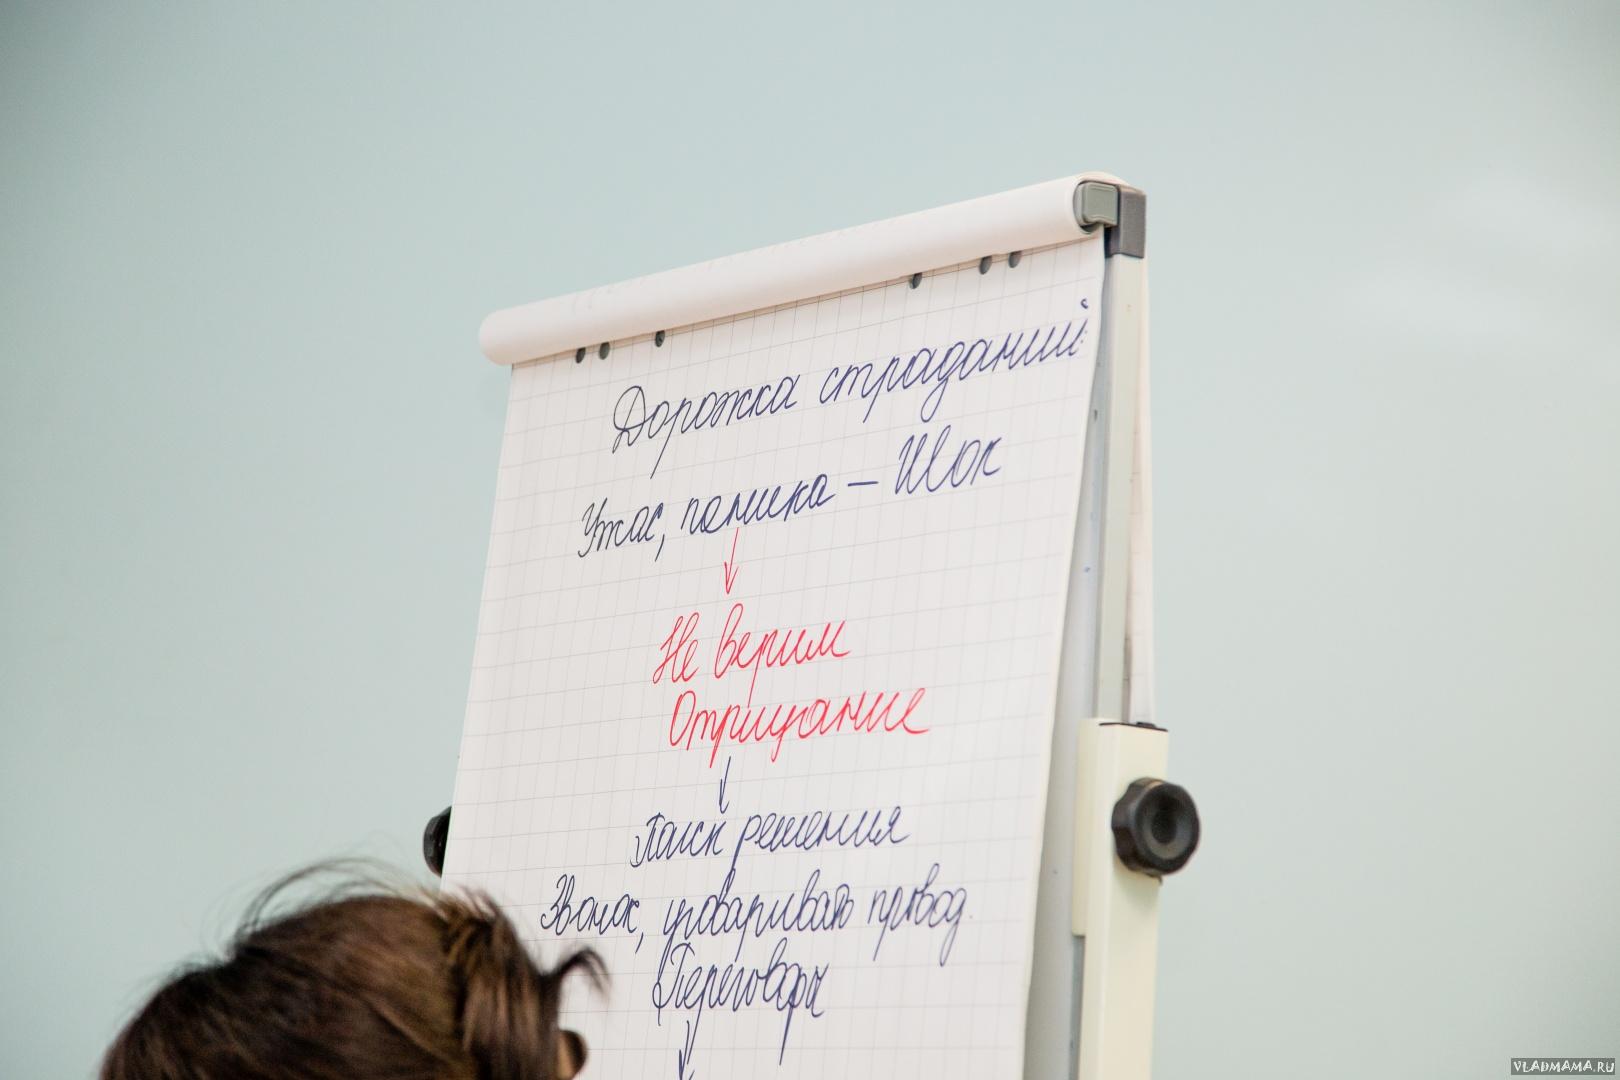 Дорожка страданий:
Ужас, паника – Шок
Не верим
Отрицание
Поиск решения
Звонок, уговаривать провод.
Переговоры
VLADMAMA.RU